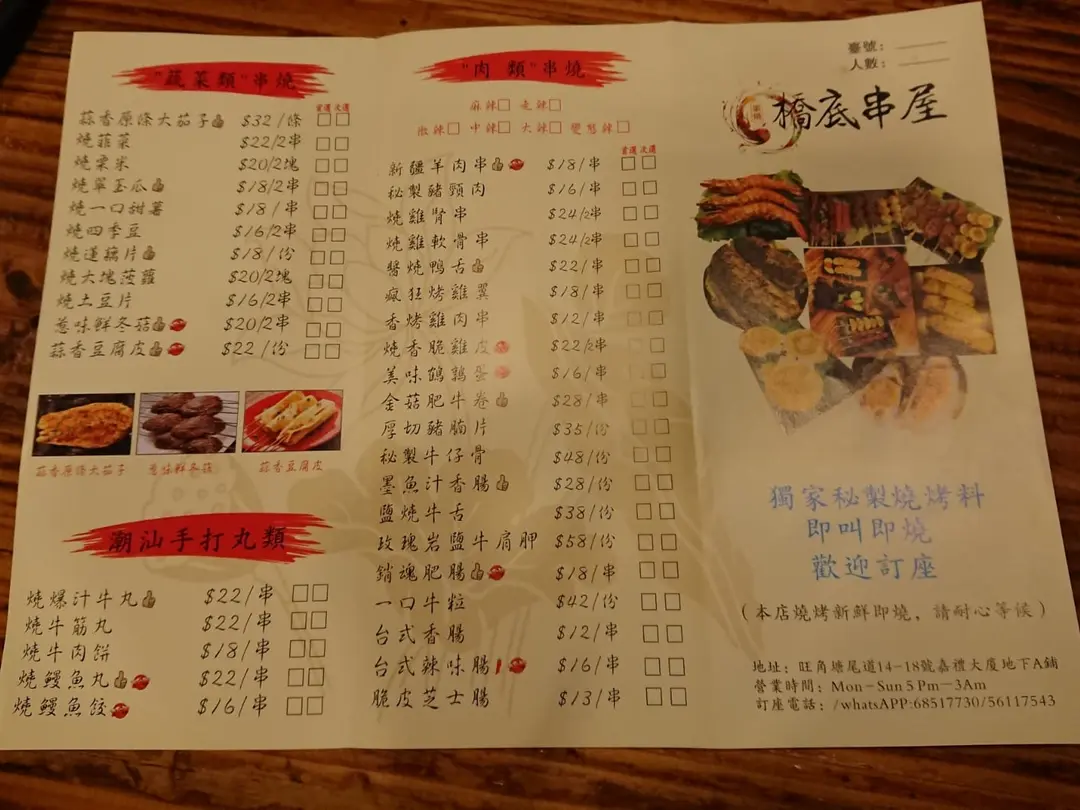 "蔬菜類"串燒
首選 次選
蒜香原條大茄子 $32/條
燒韮菜 $22/2串
燒粟米 $20/2塊
燒翠玉瓜 $18/2串
燒一口甜薯 $18/串
燒四季豆 $16/2串
燒蓮藕片 $18/份
燒大塊菠蘿 $20/2塊
燒土豆片 $16/2串
惹味鮮冬菇 $20/2串
蒜香豆腐皮 $22/份
蒜香原條大茄子 惹味鮮冬菇 蒜香豆腐皮
潮汕手打丸類
燒爆汁牛丸 $22/串
燒牛筋丸 $22/串
燒牛肉餅 $18/串
燒鰻魚丸 $22/串
燒鰻魚餃 $16/串
"肉類"串燒
麻辣 走辣
微辣 中辣 大辣 變態辣
首選 次選
新疆羊肉串 $18/串
秘製豬頸肉 $16/串
燒雞腎串 $24/2串
燒雞軟骨串 $24/2串
醬燒鴨舌 $22/串
瘋狂烤雞翼 $18/串
香烤雞肉串 $12/串
燒香脆雞皮 $22/2串
美味鵪鶉蛋 $16/串
金菇肥牛卷 $28/串
厚切豬腩片 $35/份
秘製牛仔骨 $48/份
墨魚汁香腸 $28/份
鹽燒牛舌 $38/份
玫瑰岩鹽牛肩胛 $58/份
銷魂肥腸 $18/串
一口牛粒 $42/份
台式香腸 $12/串
台式辣味腸 $16/串
脆皮芝士腸 $13/串
臺號：
人數：
橋底串屋
獨家秘製燒烤料
即叫即燒
歡迎訂座
（本店燒烤新鮮即燒，請耐心等候）
地址：旺角塘尾道14-18號嘉禮大廈地下A鋪
營業時間：Mon-Sun 5 Pm-3Am
訂座電話：/whatsAPP:68517730/56117543